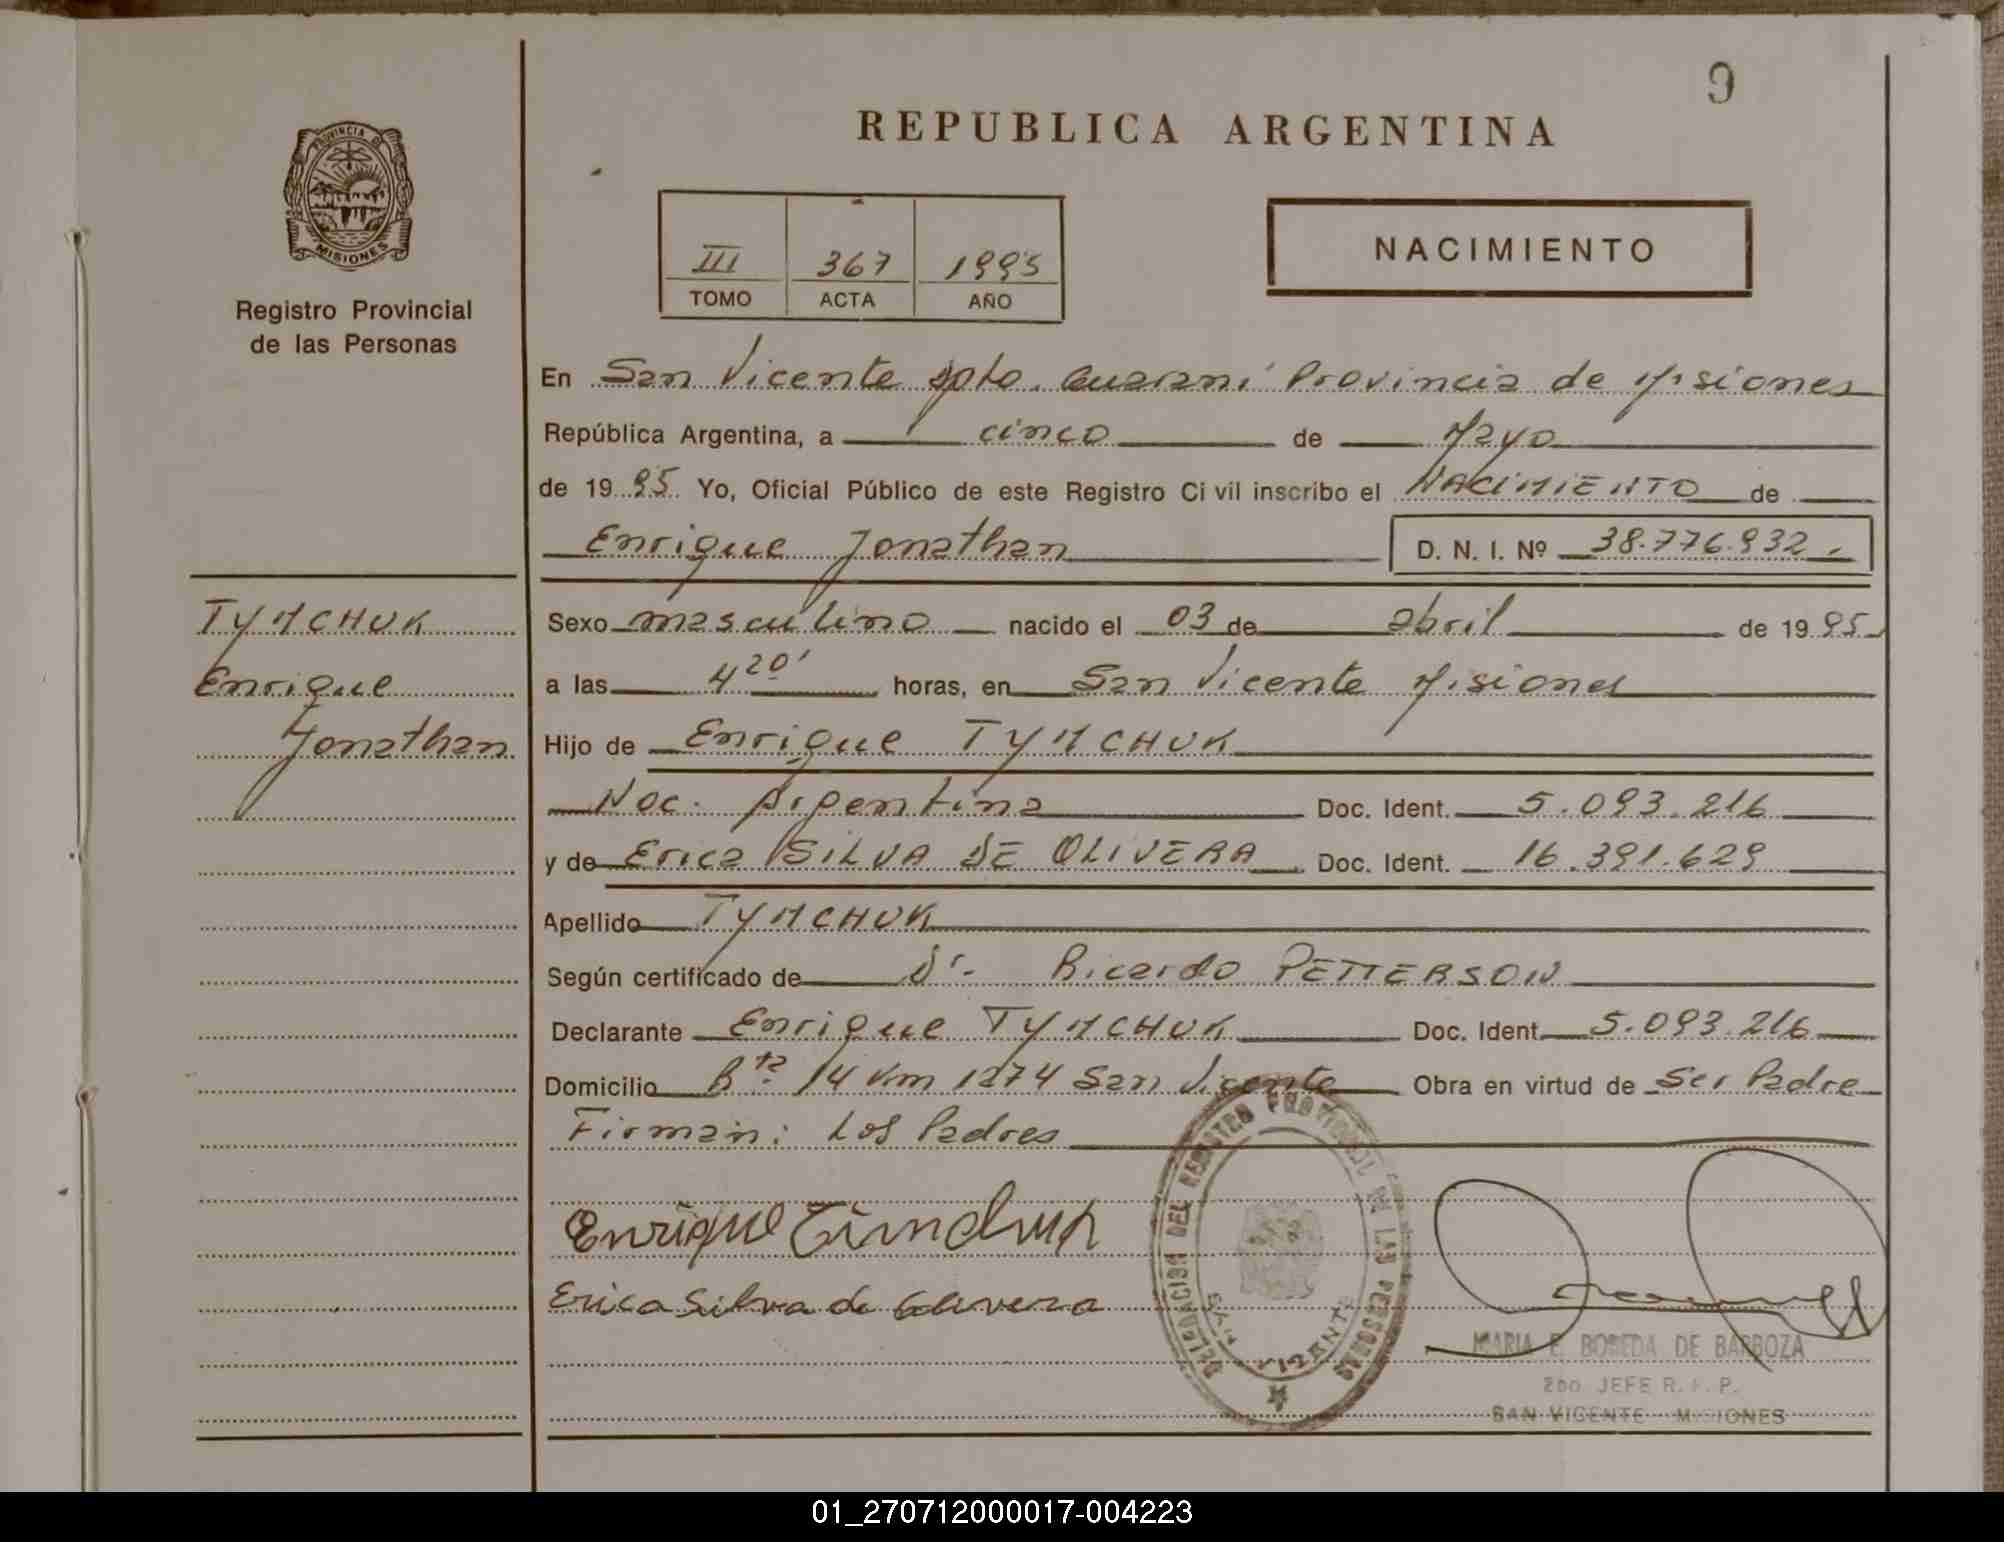 9
REPUBLICA ARGENTINA
PROVINCIA DE
MISIONES
Registro Provincial
de las Personas
III 367 1995
TOMO ACTA AÑO
NACIMIENTO
En San Vicente Dpto. Guaraní Provincia de Misiones
República Argentina, a cinco de Mayo
de 1995 Yo, Oficial Público de este Registro Civil inscribo el NACIMIENTO de
Enrique Jonathan D. N. I. Nº 38.776.932.
TYMCHUK
Enrique
Jonathan
Sexo masculino nacido el 03 de abril de 1995
a las 4 20' horas, en San Vicente Misiones
Hijo de Enrique TYMCHUK
Nac. Argentina Doc. Ident. 5.093.216
y de Erica SILVA DE OLIVERA Doc. Ident. 16.391.629
Apellido TYMCHUK
Según certificado de Dr. Ricardo PETTERSON
Declarante Enrique TYMCHUK Doc. Ident. 5.093.216
Domicilio Rta. 14 Km 1274 San Vicente Obra en virtud de Ser Padre
Firman: Los Padres
Enrique Timchuk
Erica Silva de Olivera
DELEGACION DEL REGISTRO PROVINCIAL DE LAS PERSONAS
SAN VICENTE
MARIA E. BOBEDA DE BARBOZA
2DO JEFE R. P. P.
SAN VICENTE MISIONES
01_270712000017-004223